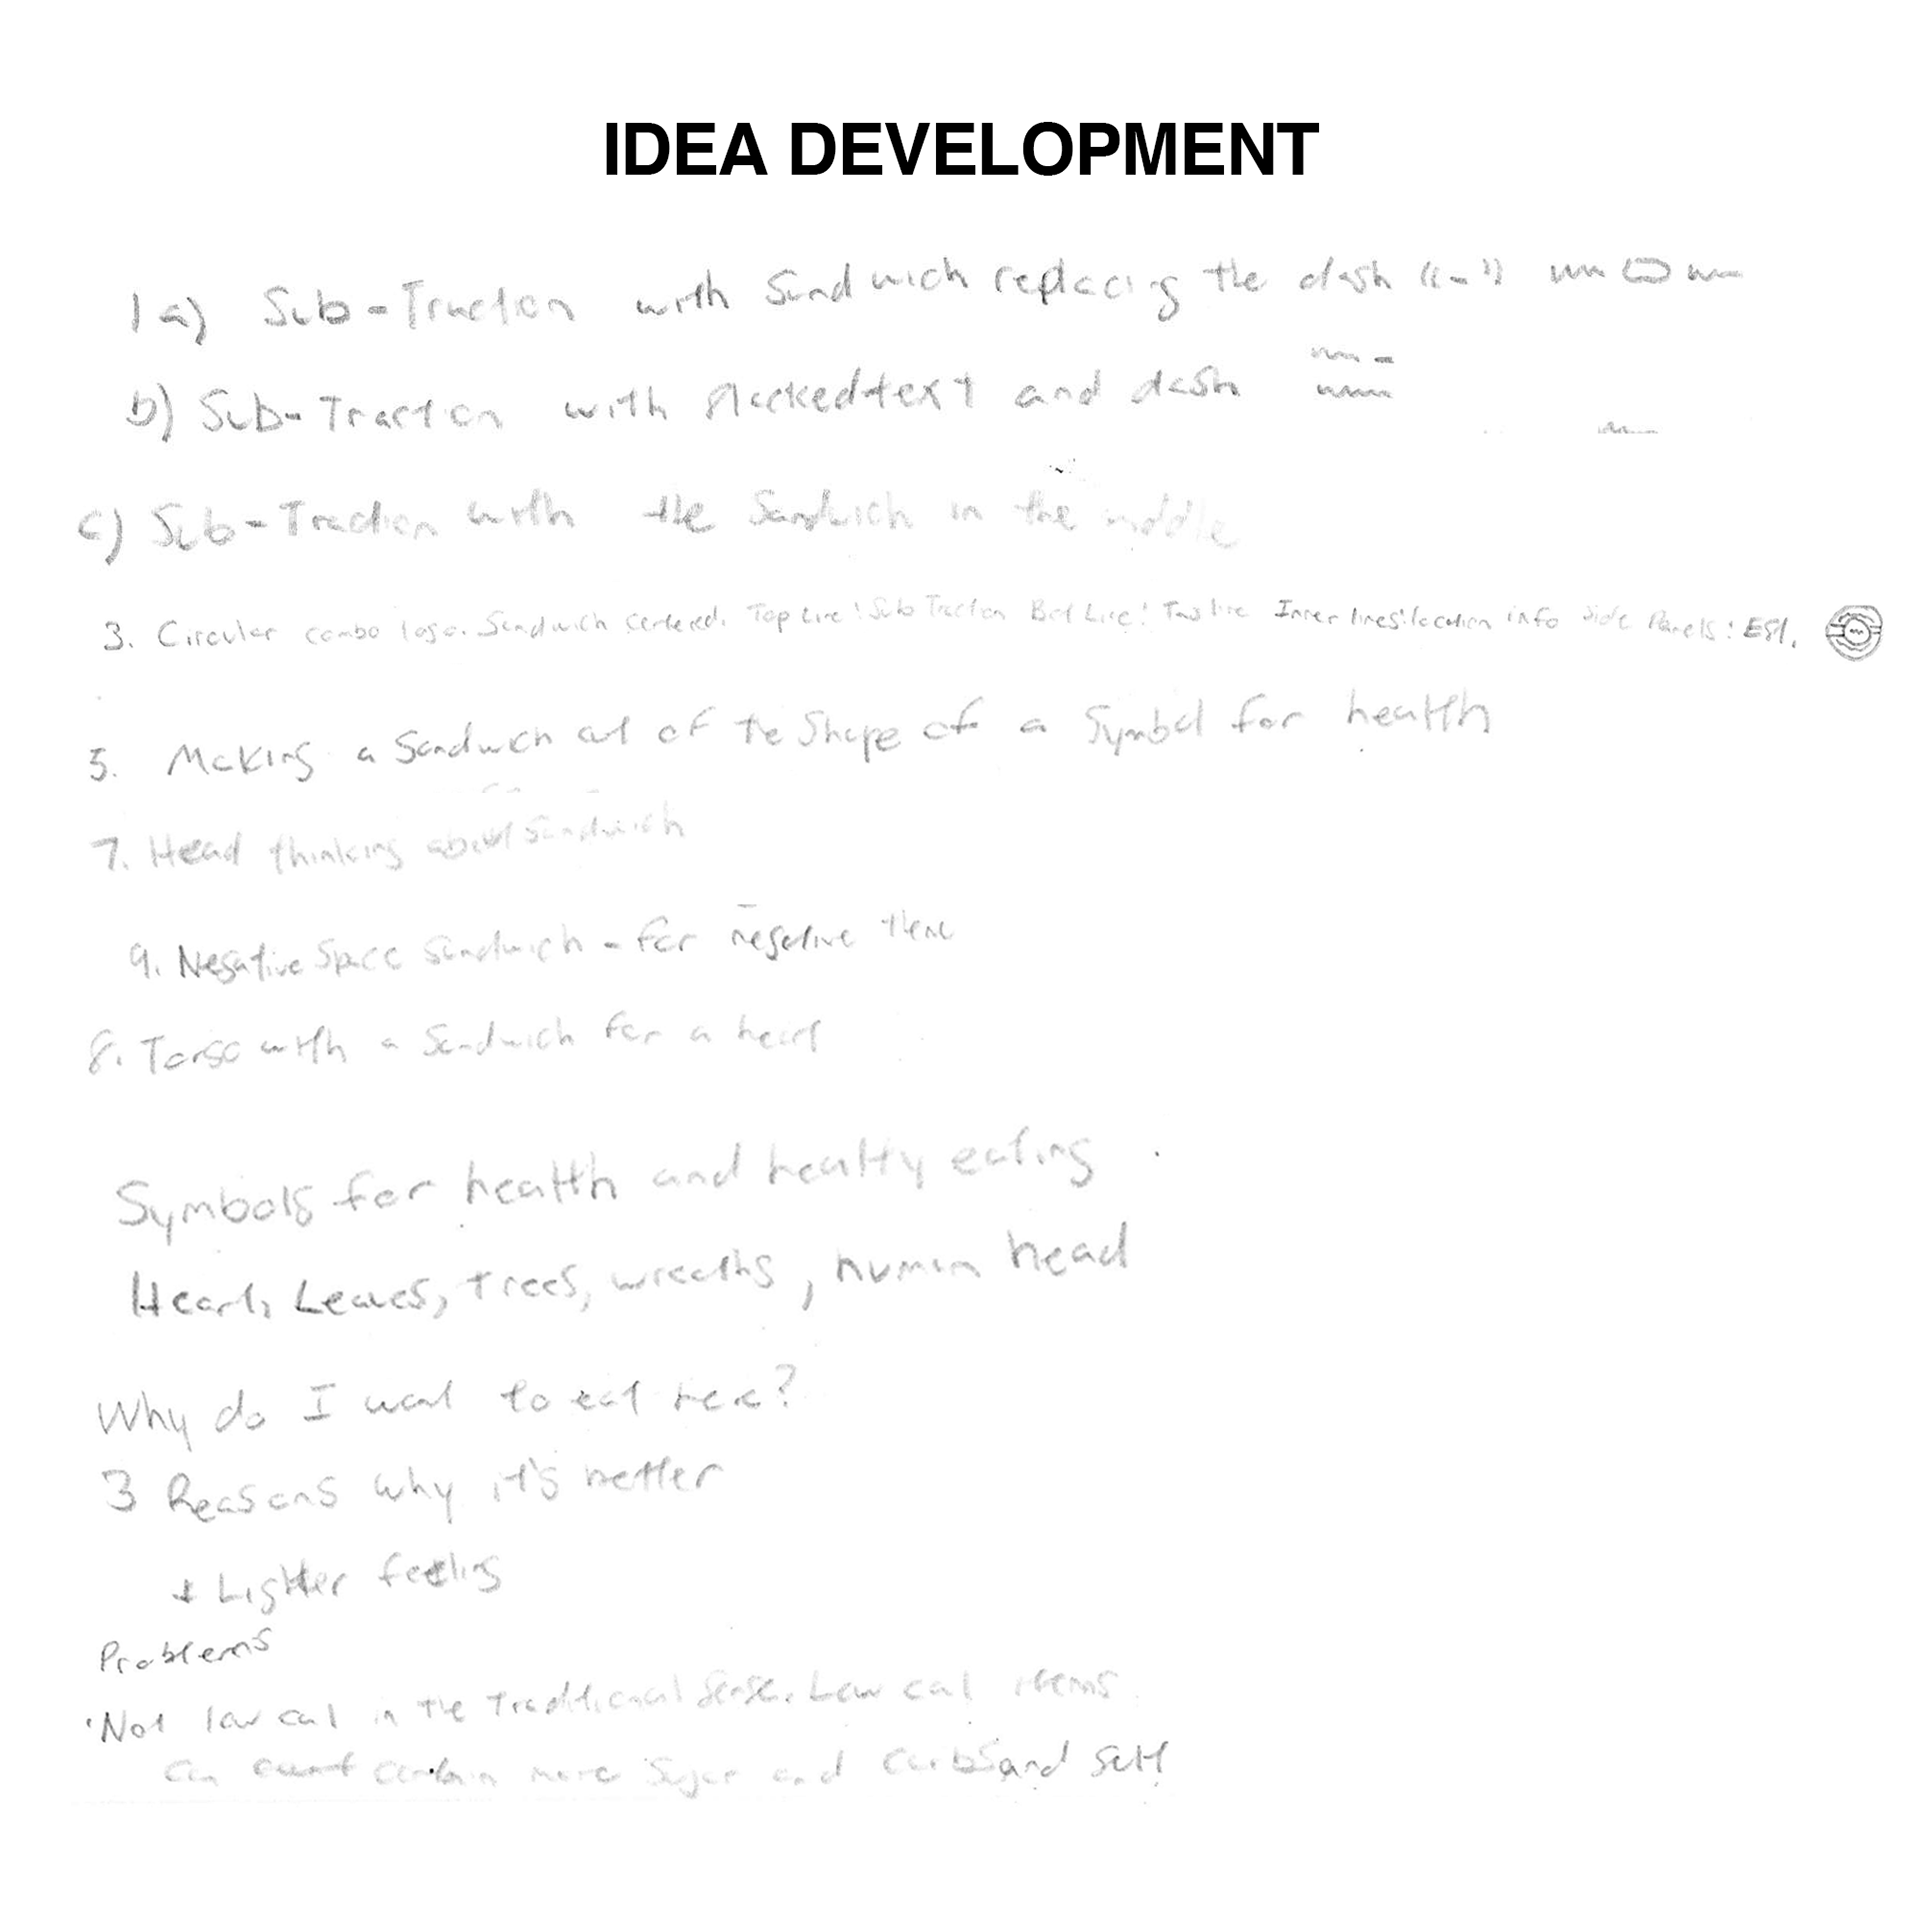 IDEA DEVELOPMENT
1a) Sub-Traction with Sandwich replacing the dash "-"
b) Sub-Traction with stacked text and dash
c) Sub-Traction with the Sandwich in the middle
3. Circular combo logo. Sandwich centered. Top Line: Sub Traction Bot Line: Tagline Inner lines: location info Side Panels: Est.
5. Making a Sandwich out of the Shape of a Symbol for health
7. Head thinking about Sandwich
9. Negative Space Sandwich - for negative theme
8. Torso with a Sandwich for a heart
Symbols for health and healthy eating
Heart, Leaves, trees, wreaths, human head
Why do I want to eat here?
3 Reasons why it's better
+ Lighter feeling
Problems
·Not low cal in the traditional Sense. Low cal items
can contain more Sugar and Carbs and Salt